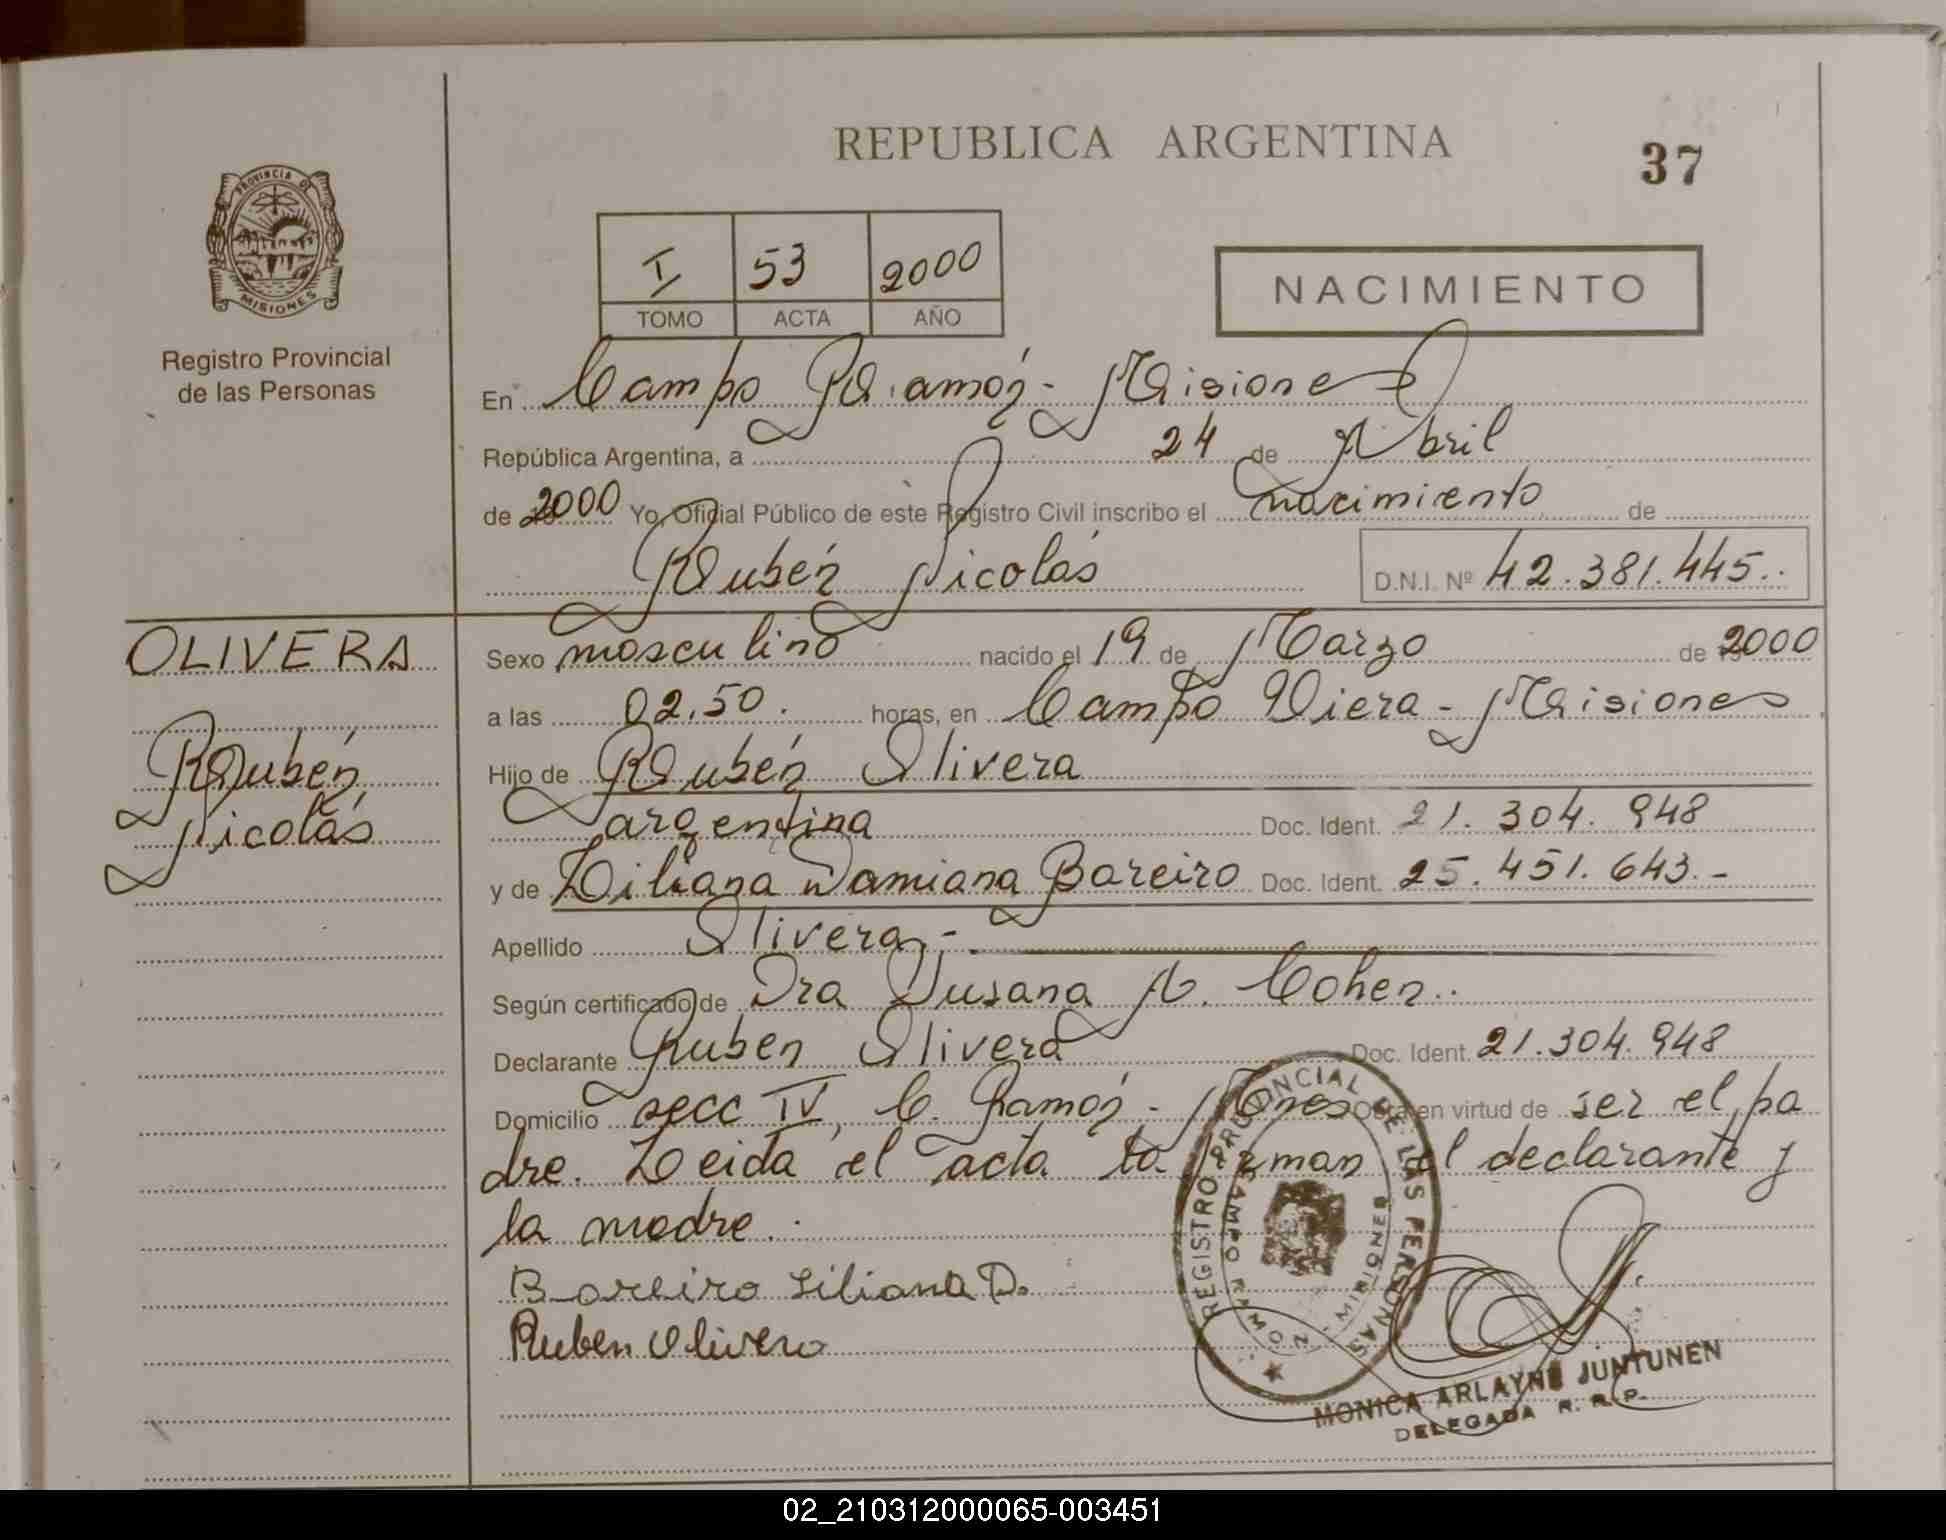 REPUBLICA ARGENTINA
37
PROVINCIA DE
MISIONES
Registro Provincial
de las Personas
I 53 2000
TOMO ACTA AÑO
NACIMIENTO
En Campo Ramón - Misiones
República Argentina, a 24 de Abril
de 2000 Yo, Oficial Público de este Registro Civil inscribo el nacimiento de
Rubén Nicolás
D.N.I. Nº 42.381.445.
OLIVERA
Rubén
Nicolás
Sexo masculino nacido el 19 de Marzo de 2000
a las 02.50. horas, en Campo Viera - Misiones
Hijo de Rubén Olivera
argentina Doc. Ident. 21.304.948
y de Liliana Damiana Bareiro Doc. Ident. 25.451.643.-
Apellido Olivera -.
Según certificado de Dra Susana N. Cohen.
Declarante Ruben Olivera Doc. Ident. 21.304.948
Domicilio secc IV, C. Ramón - Mnes Obra en virtud de ser el pa
dre. Leida el acta la firman el declarante y
la madre.
Bareiro Liliana D.
Ruben Olivera
REGISTRO PROVINCIAL DE LAS PERSONAS
CAMPO RAMON - MISIONES
MONICA ARLAYNE JUNTUNEN
DELEGADA R. R. P.
02_210312000065-003451